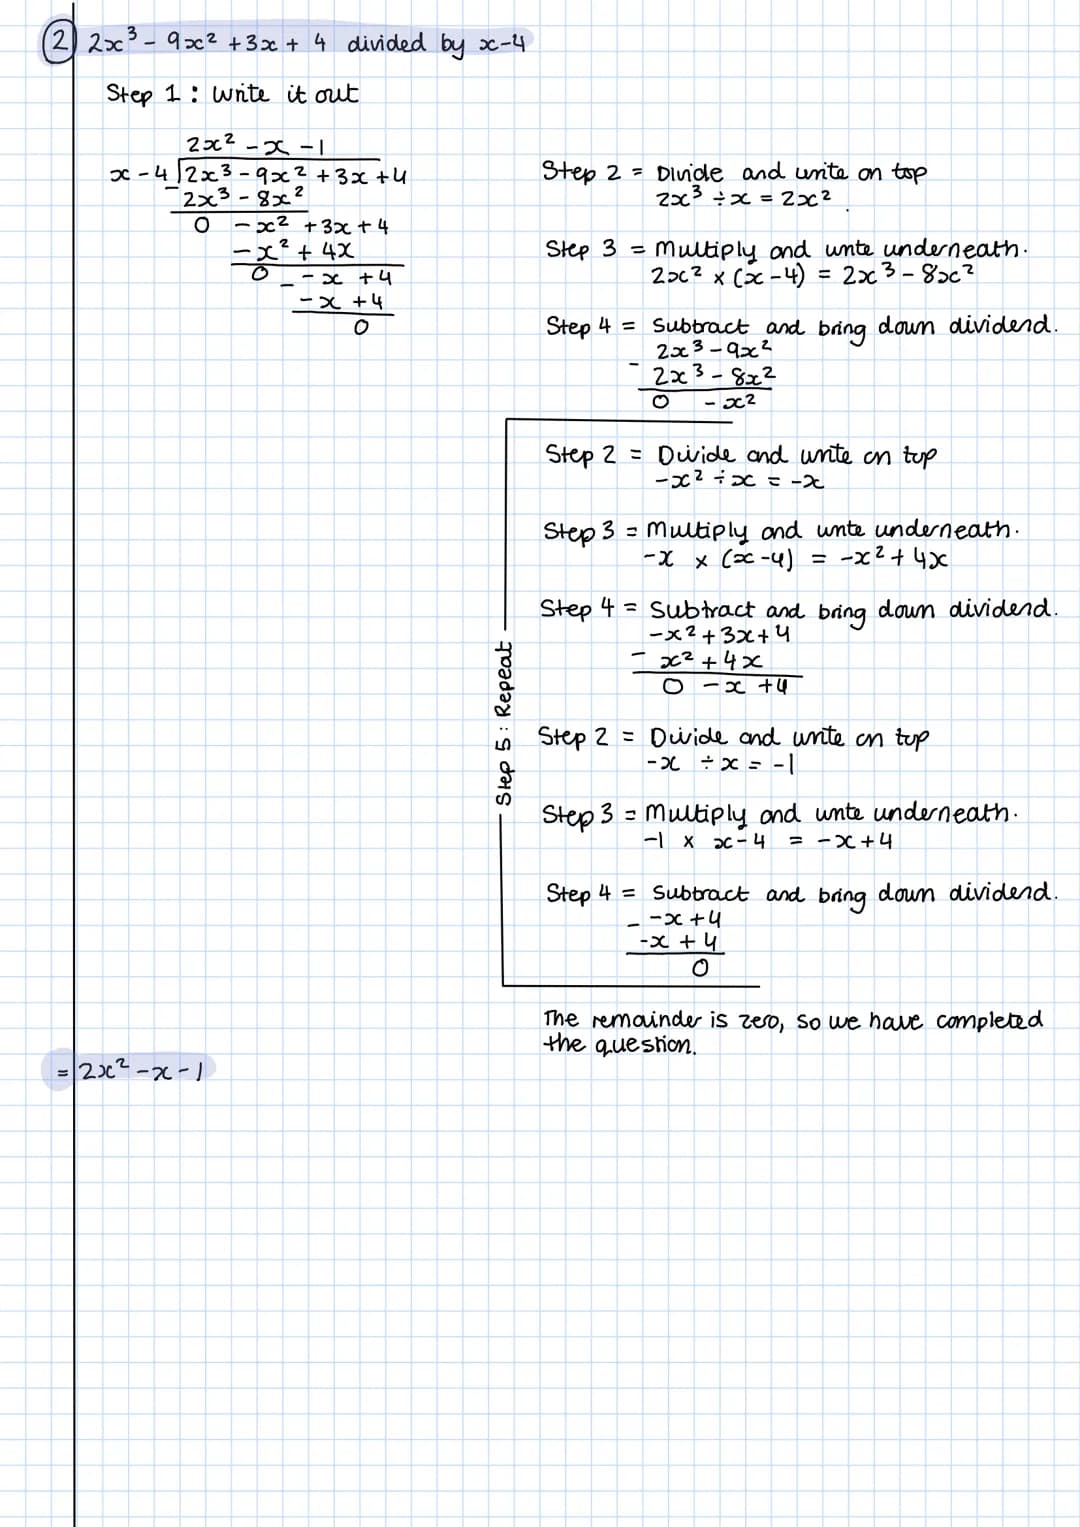 2) 2x³ - 9x² + 3x + 4 divided by x-4
Step 1 : Write it out
2x² - x - 1
x - 4 | 2x³ - 9x² + 3x + 4
- 2x³ - 8x²
0 - x² + 3x + 4
- x² + 4x
0 - x + 4
- - x + 4
0
Step 2 = Divide and write on top
2x³ ÷ x = 2x²
Step 3 = Multiply and write underneath.
2x² × (x - 4) = 2x³ - 8x²
Step 4 = Subtract and bring down dividend.
2x³ - 9x²
- 2x³ - 8x²
0 - x²
Step 5 : Repeat
Step 2 = Divide and write on top
-x² ÷ x = -x
Step 3 = Multiply and write underneath.
-x × (x - 4) = -x² + 4x
Step 4 = Subtract and bring down dividend.
-x² + 3x + 4
- x² + 4x
0 - x + 4
Step 2 = Divide and write on top
-x ÷ x = -1
Step 3 = Multiply and write underneath.
-1 × x - 4 = -x + 4
Step 4 = Subtract and bring down dividend.
- -x + 4
-x + 4
0
The remainder is zero, so we have completed
the question.
= 2x² - x - 1